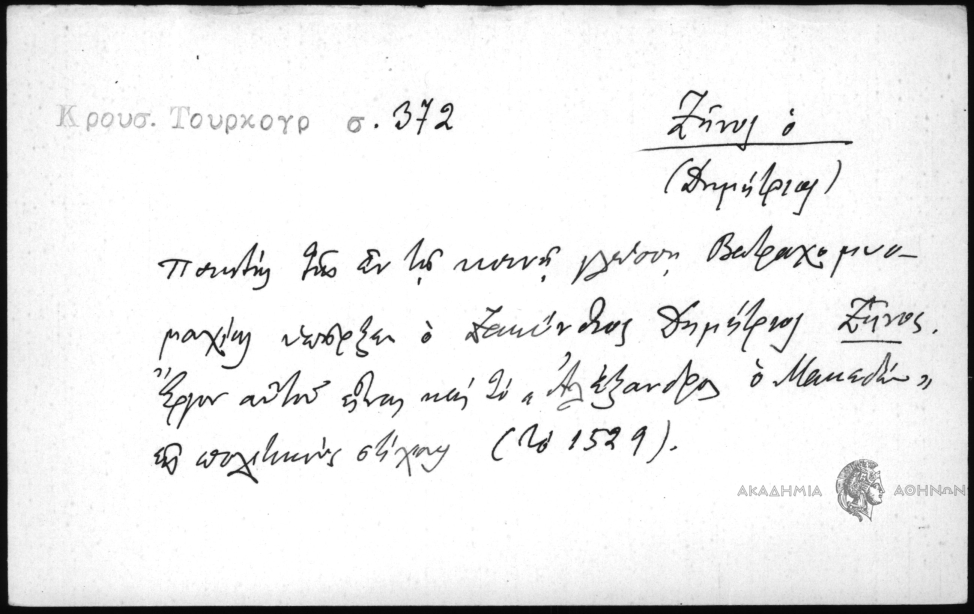 Κρουσ. Τουρκογρ σ. 372
Ζῆνος ὁ
(Δημήτριος)
Ποιητὴς τῆς ἐν τῇ κοινῇ γλώσσῃ Βατραχομυο-
μαχίας ὑπῆρξεν ὁ Ζακύνθιος Δημήτριος Ζῆνος.
Ἔργον αὐτοῦ εἶναι καὶ τὸ „Ἀλέξανδρος ὁ Μακεδών"
εἰς πολιτικοὺς στίχους (τῷ 1529).
ΑΚΑΔΗΜΙΑ ΑΘΗΝΩΝ